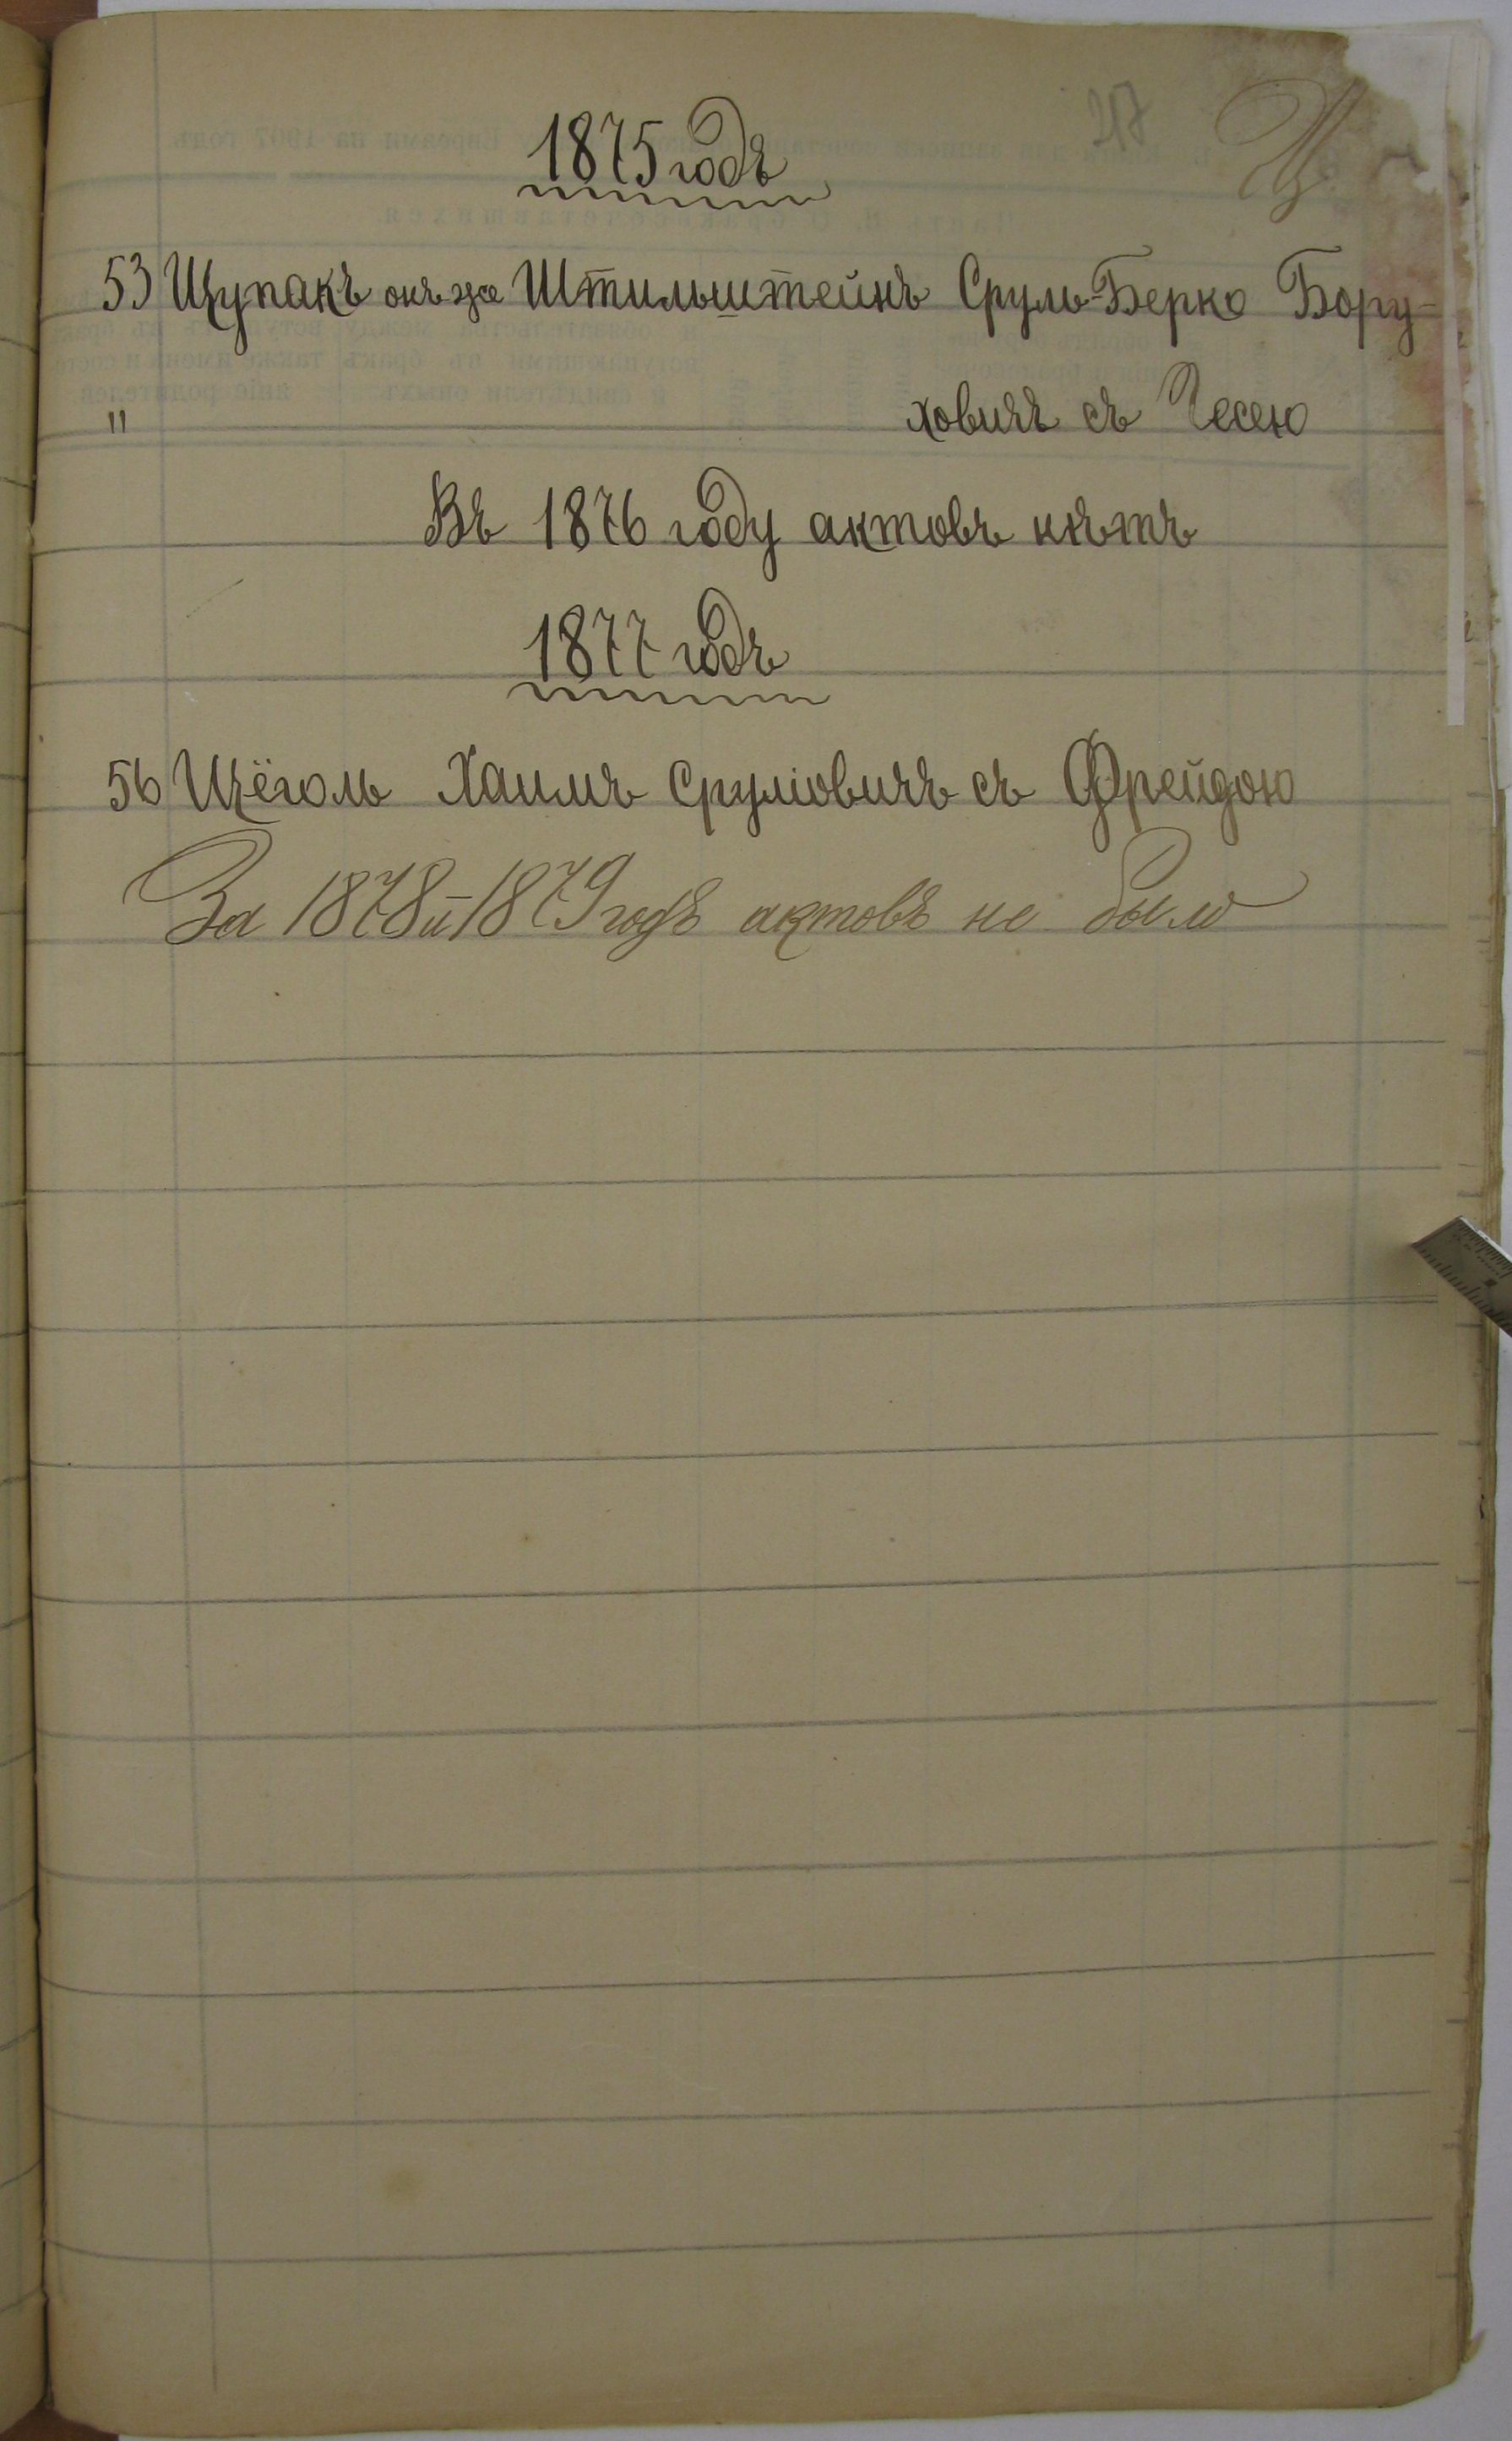 217
Щ
1875 годъ
53 Щупакъ онъ же Штильштейнъ Сруль-Берко Бору-
" ховичъ съ Чесею
Въ 1876 году актовъ нѣтъ
1877 годъ
56 Щёголь Хаимъ Сруліовичъ съ Фрейдою
За 1878 и 1879 годъ актовъ не было